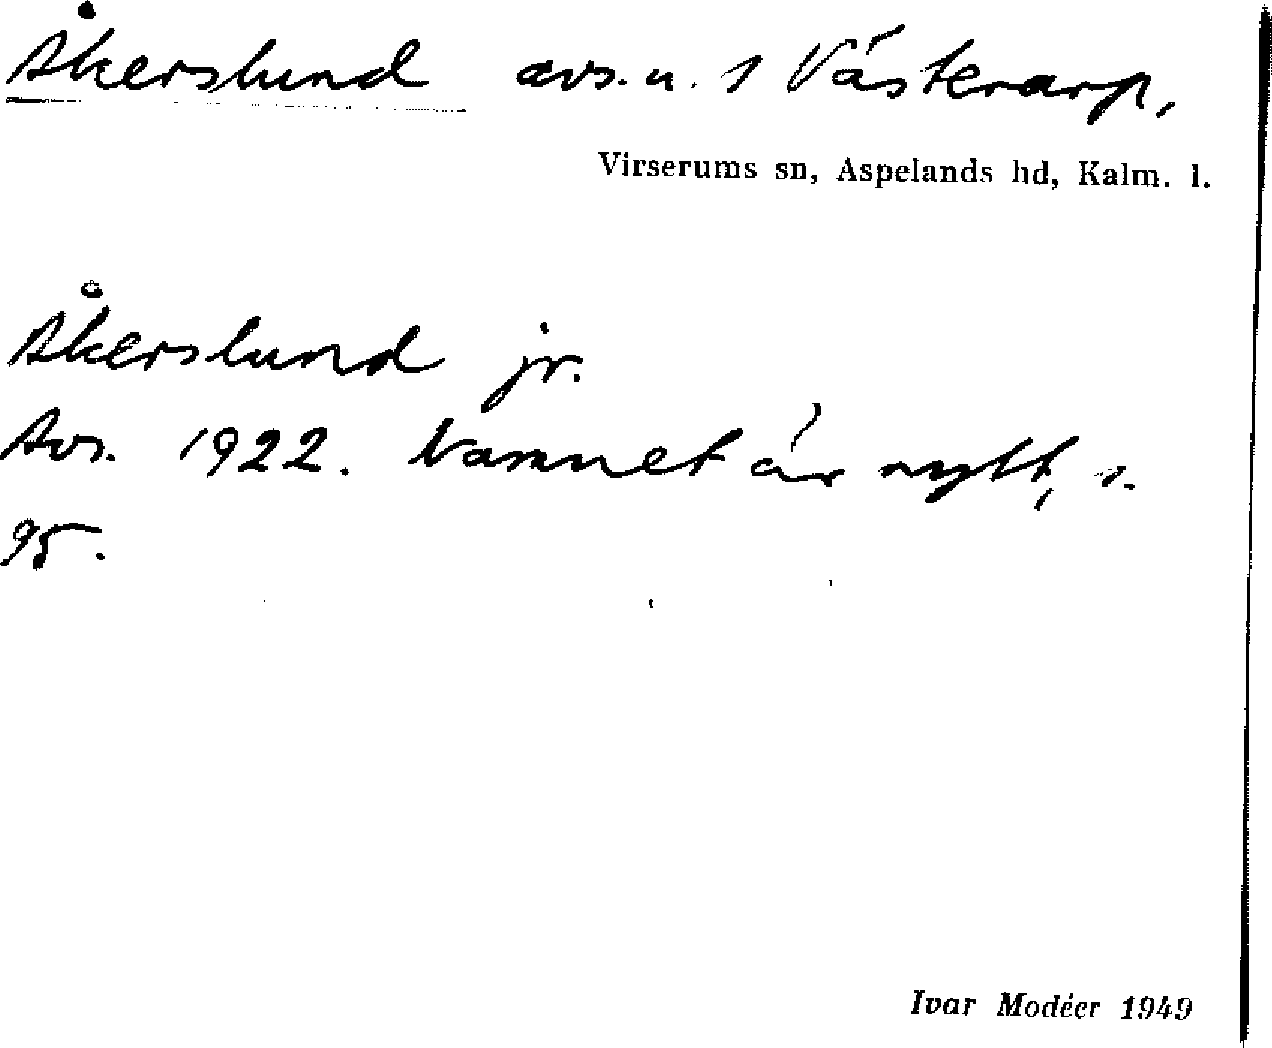 Åkerslund avs. u. 1 Västerarp,
Virserums sn, Aspelands hd, Kalm. l.
Åkerslund jr.
Avs. 1922. Namnet är nytt, s.
95.
Ivar Modéer 1949